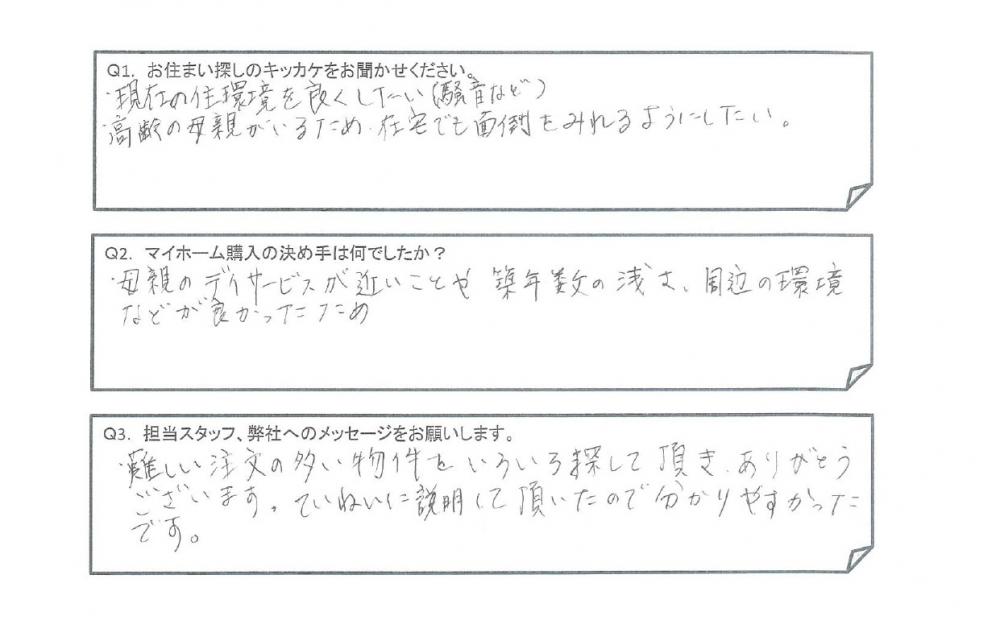 Q1. お住まい探しのキッカケをお聞かせください。
・現在の住環境を良くしたい(騒音など)
高齢の母親がいるため、在宅でも面倒をみれるようにしたい。
Q2. マイホーム購入の決め手は何でしたか？
・母親のデイサービスが近いことや築年数の浅さ、周辺の環境
などが良かったため
Q3. 担当スタッフ、弊社へのメッセージをお願いします。
・難しい注文の多い物件をいろいろ探して頂き、ありがとう
ございます。ていねいに説明して頂いたので分かりやすかった
です。